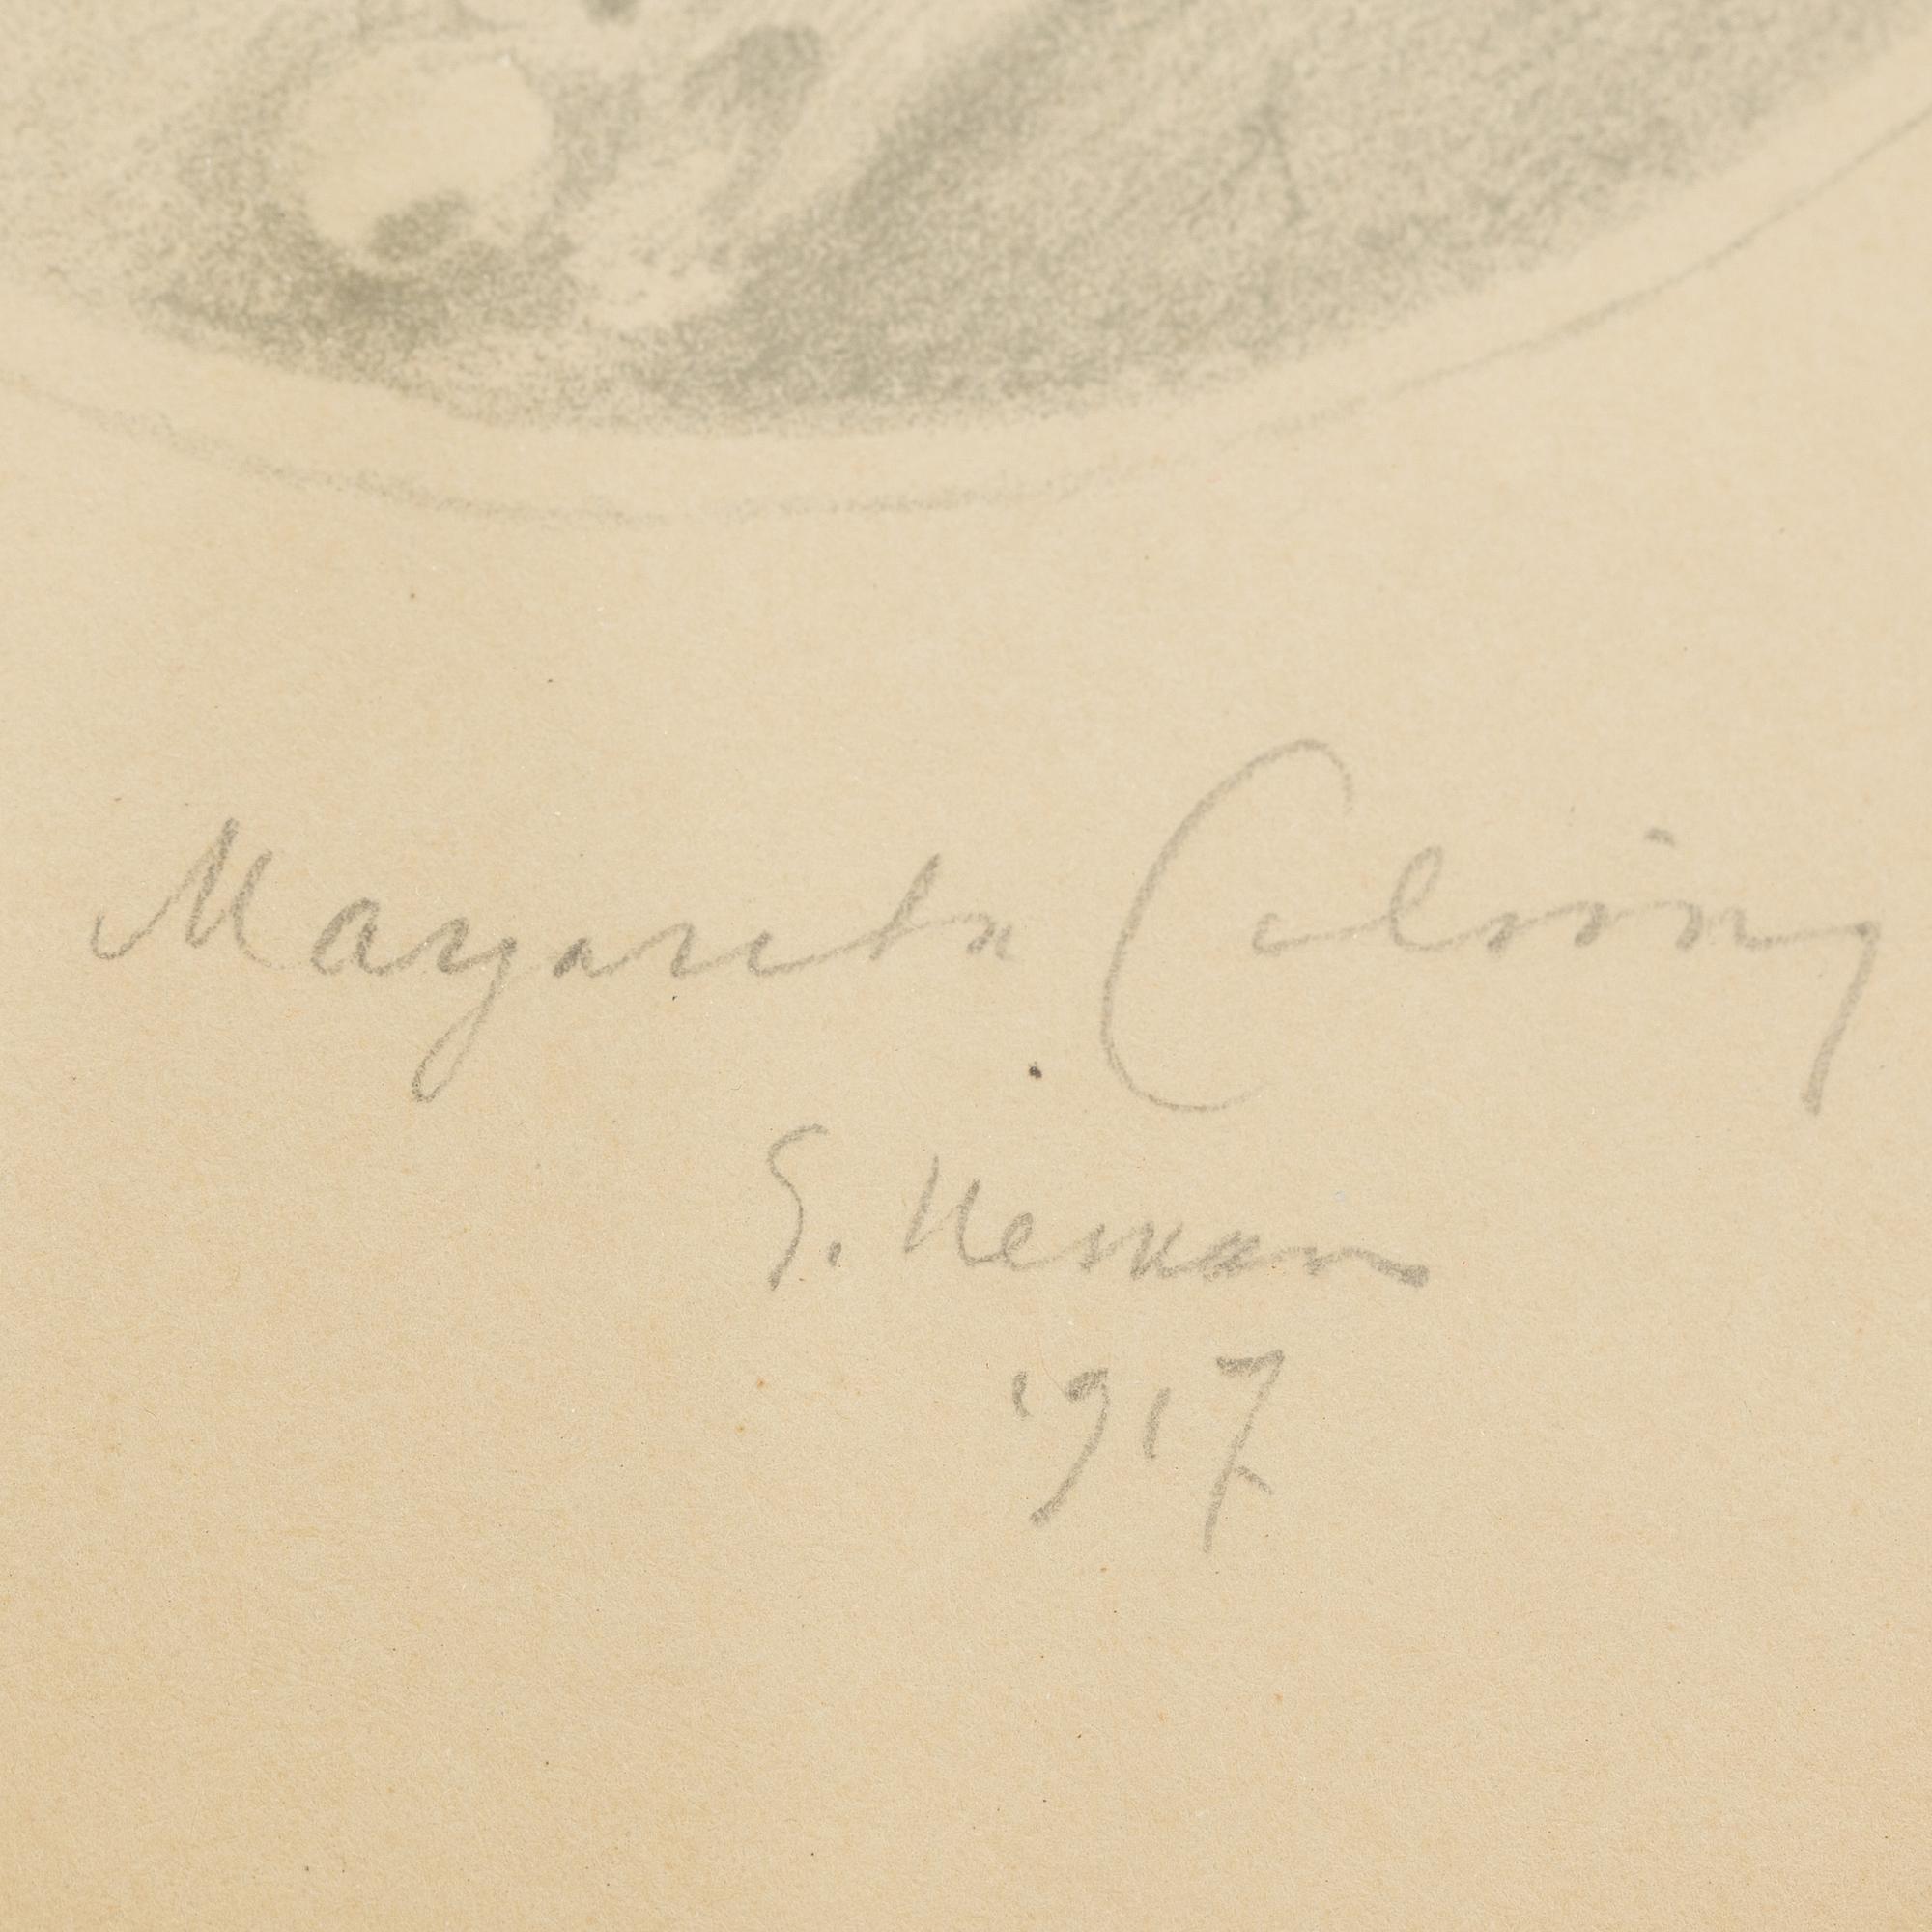 Margareta Calving
S. Herman
1917